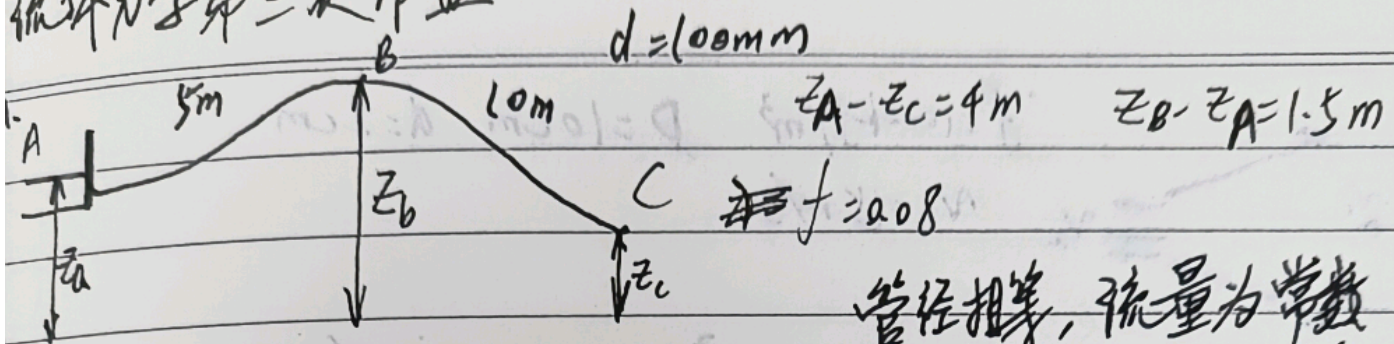 流体力学第二次作业
d=100mm
B
1.
5m
10m
Z_A-Z_C=4m
Z_B-Z_A=1.5m
A
Z_b
C
f=0.08
Z_a
Z_c
管径相等,流量为常数